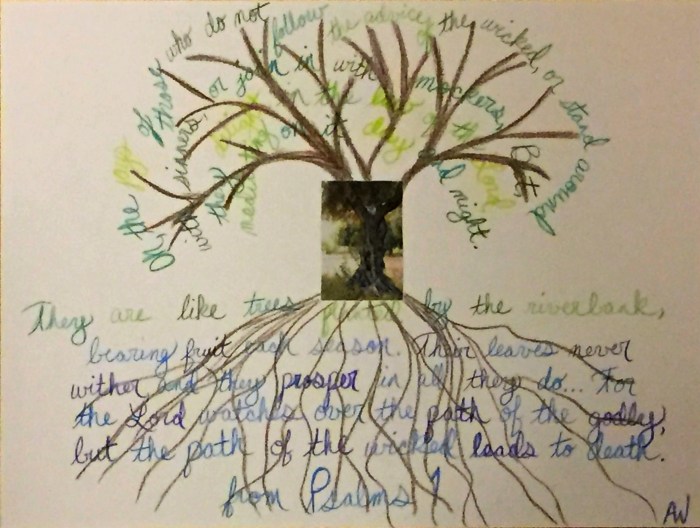 Oh, the joys of those who do not follow the advice of the wicked, or stand around
with sinners, or join in with mockers, But,
they delight in the law of the Lord
meditating on it day and night.
They are like trees planted by the riverbank,
bearing fruit each season. Their leaves never
wither and they prosper in all they do... For
the Lord watches over the path of the godly,
but the path of the wicked leads to death.
from Psalms 1
AW